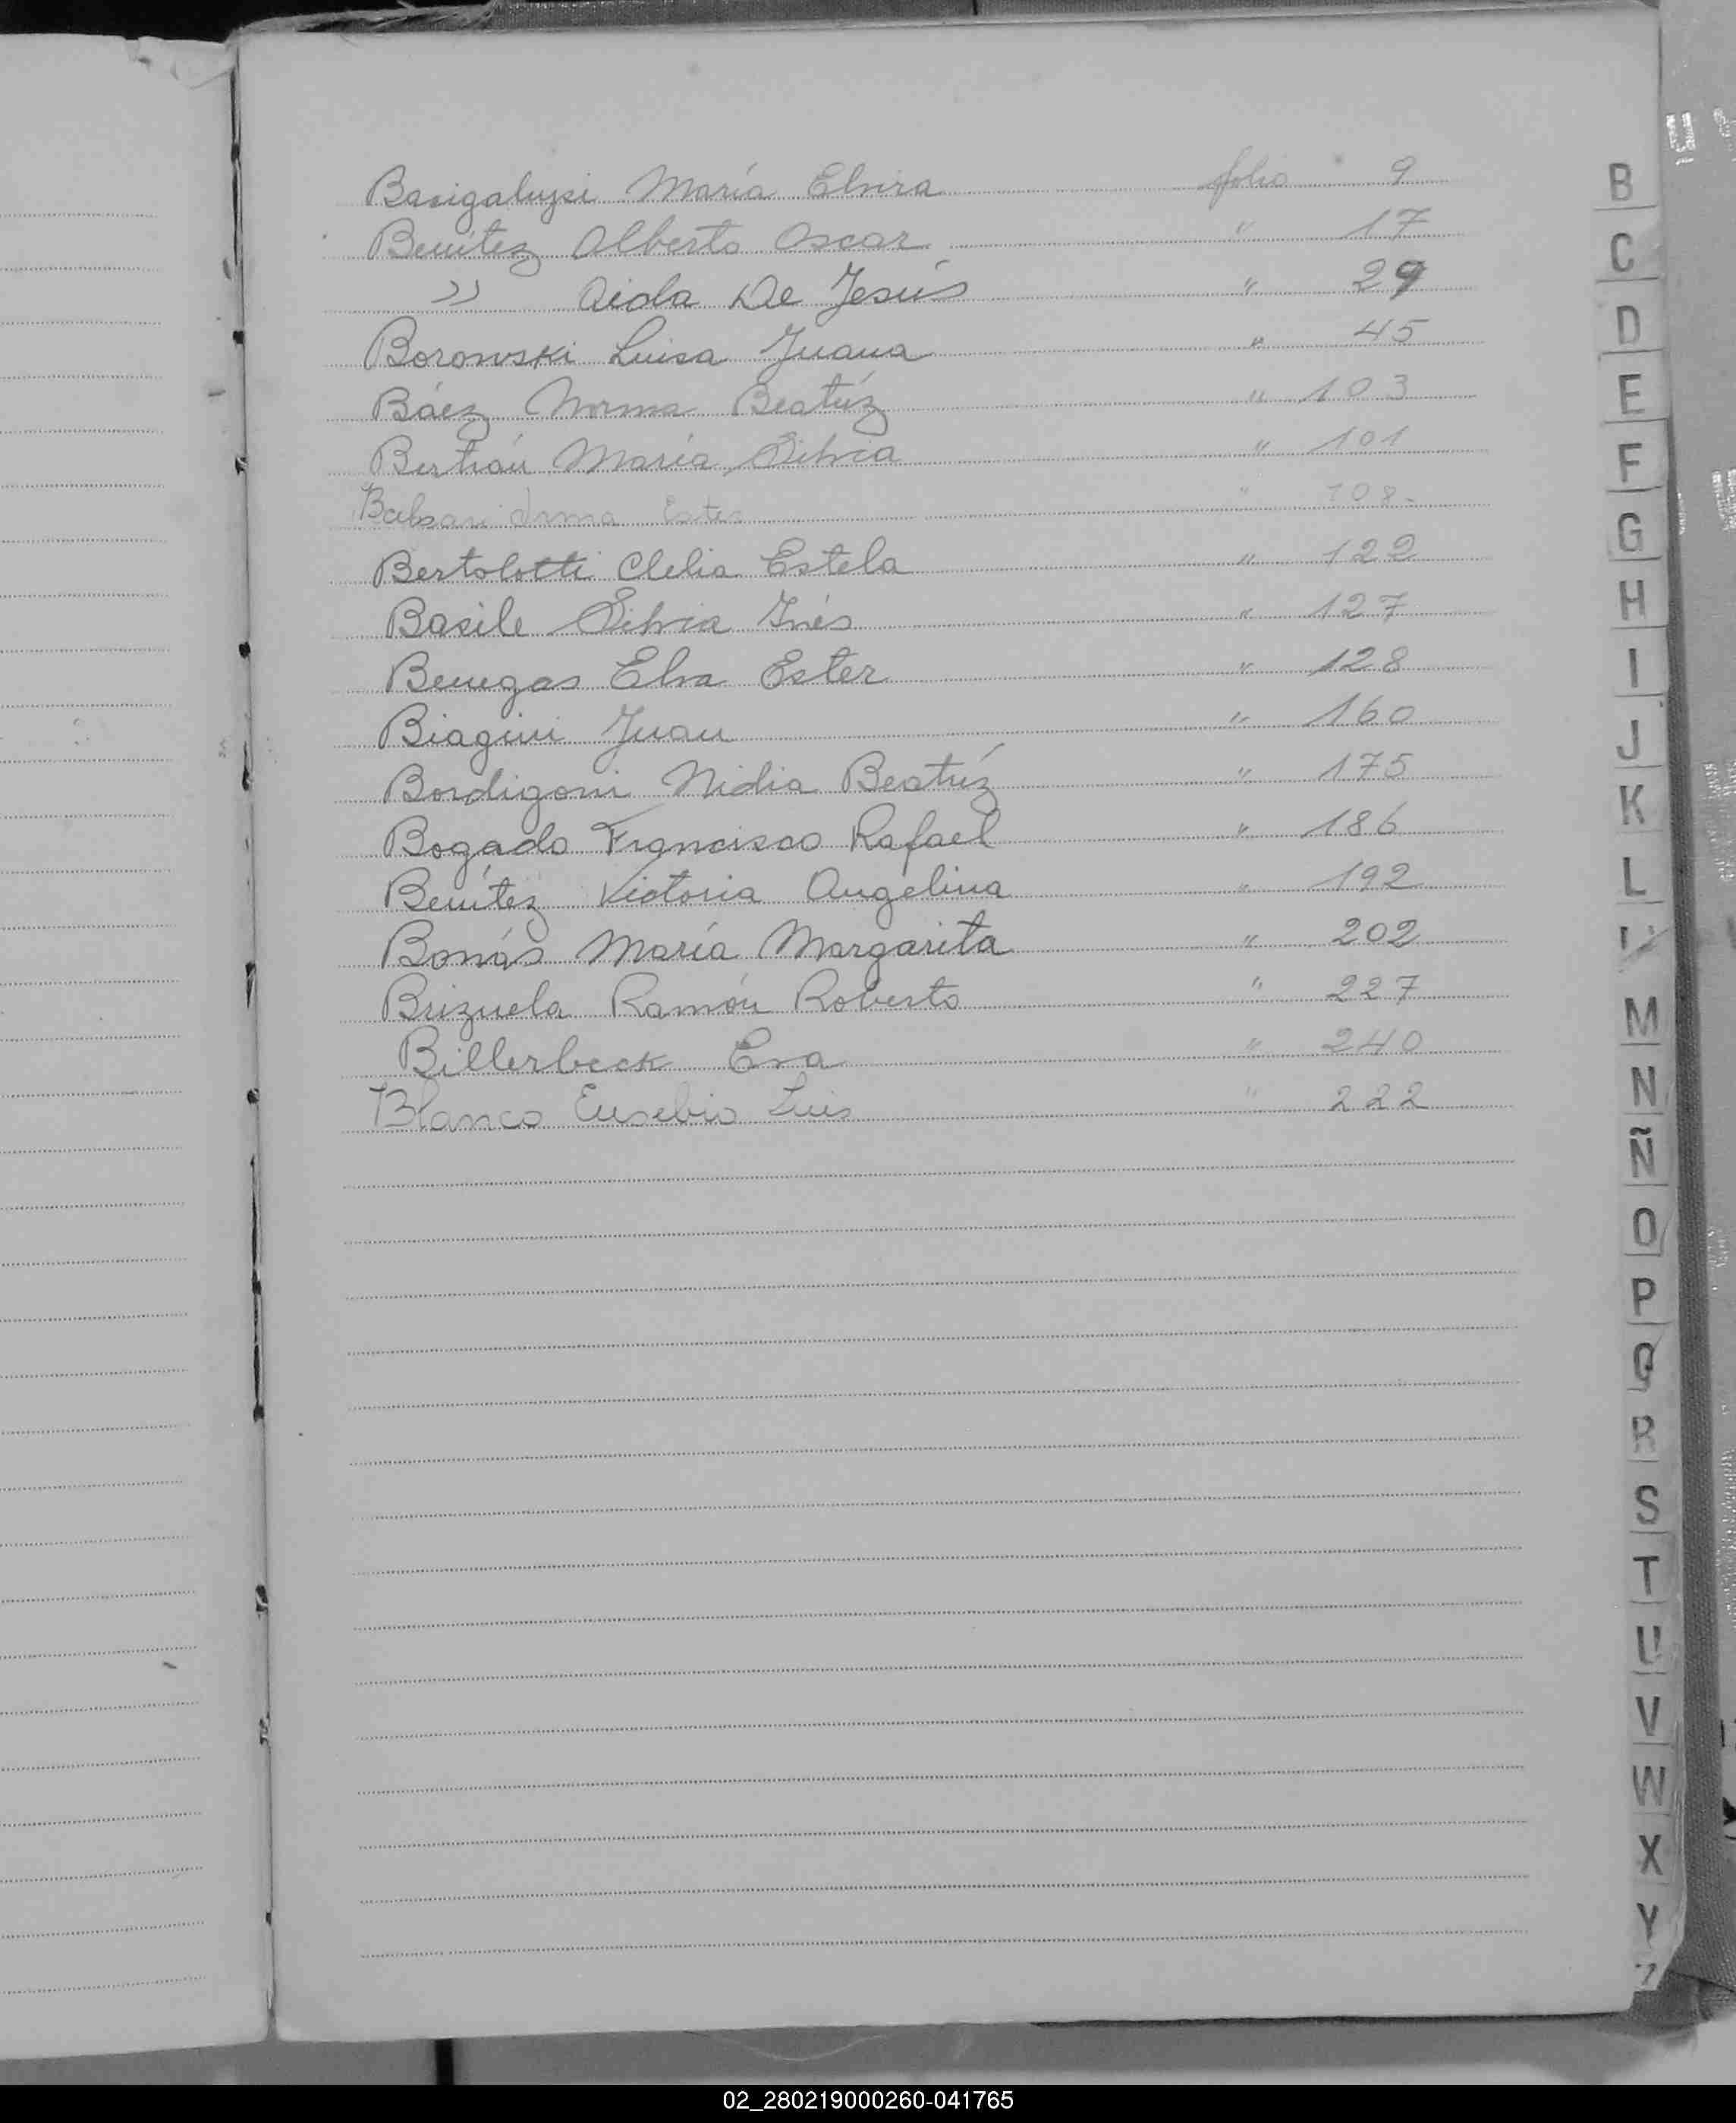 Bacigalupi María Elvira folio 9
Benítez Alberto Oscar " 17
" Aida De Jesús " 29
Borowski Luisa Juana " 45
Báez Norma Beatríz " 103
Bertrán María Silvia " 101
Irma Ester " 108-
Bertolotti Clelia Estela " 122
Basile Silvia Inés " 127
Benegas Elva Ester " 128
Biagini Juan " 160
Bordigoni Nidia Beatríz " 175
Bogado Francisco Rafael " 186
Benítez Victoria Angelina " 192
Bonás María Margarita " 202
Brizuela Ramón Roberto " 227
Billerbeck Eva " 240
Blanco Eusebio Luis " 222
B
C
D
E
F
G
H
I
J
K
L
M
N
Ñ
O
P
Q
R
S
T
U
V
W
X
Y
Z
02_280219000260-041765